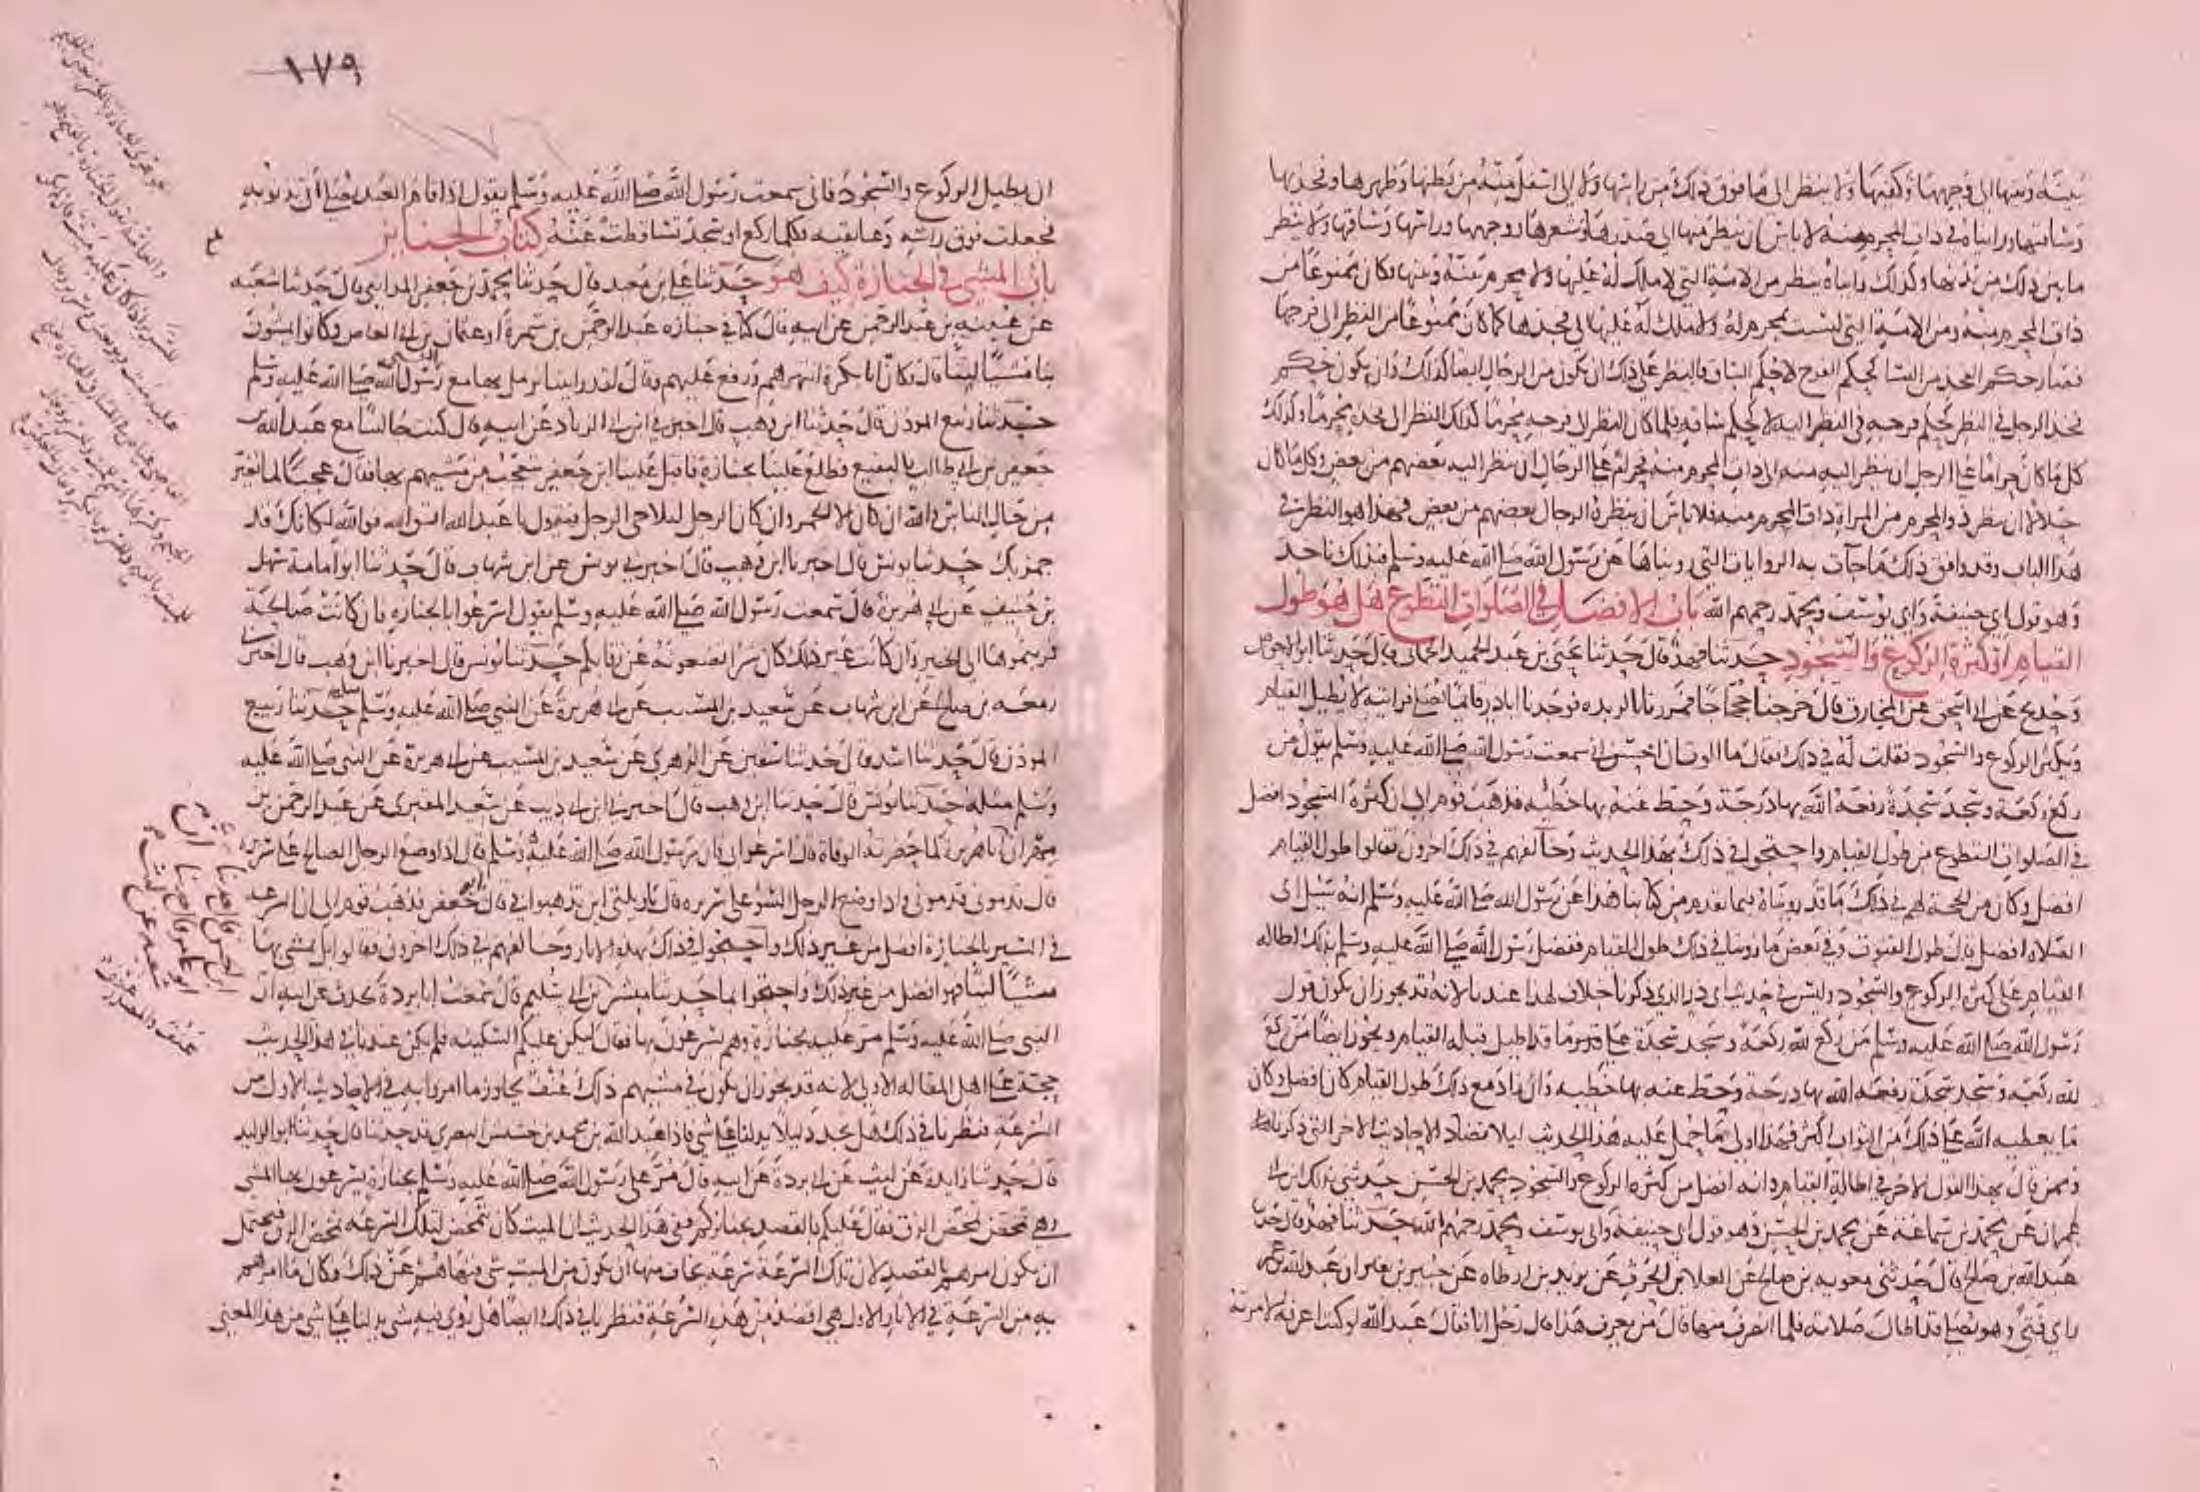 منه ومنها الى وجهها وكفيها ولا ينظر الى ما فوق ذلك من راسها ولا الى اسفل منه من بطنها وظهرها وفخذها
وساقيها وراينا في ذات المحرم منه لا باس ان ينظر منها الى صدرها وشعرها ووجهها وراسها وساقها ولا ينظر
ما بين ذلك من بدنها وكذلك رايناه ينظر من الامة التي لا ملك له عليها ولا محرم بينه وبينها فكان ممنوعا من
ذات المحرم منه ومن الامة التي ليست بمحرم له ولا ملك له عليها الى فخذها كما كان ممنوعا من النظر الى فرجها
فصار حكم الفخذ من النسا كحكم الفرج لا كحكم الساق فالنظر على ذلك ان يكون من الرجال ايضا كذلك وان يكون حكم
فخذ الرجل في النظر كحكم فرجه في النظر اليه لا كحكم ساقه فلما كان النظر الى فرجه محرما كذلك النظر الى فخذه محرما وكذلك
كل ما كان حراما على الرجل ان ينظر اليه منه الى ذات المحرم منه فحرام على الرجال ان ينظر اليه بعضهم من بعض وكل ما كان
حلالا ان ينظر ذو المحرم من المراة ذات المحرم منه فلا باس ان ينظره الرجال بعضهم من بعض فهذا هو النظر في
هذا الباب وقد وافق ذلك ما جات به الروايات التي رويناها عن رسول الله صلى الله عليه وسلم فبذلك ناخذ
وهو قول ابي حنيفة وابي يوسف ومحمد رحمهم الله باب الافضل في الصلوات التطوع هل هو طول
القيام او كثرة الركوع والسجود حدثنا فهد قال حدثنا يحيى بن عبد الحميد الحماني قال حدثنا ابو الاحوص
وحديج عن ابي اسحق عن المخارق قال خرجنا حجاجا فمررنا بالربذه فوجدنا اباذر قائما يصلي فرايته لا يطيل القيام
ويكثر الركوع والسجود فقلت له في ذلك فقال ما الوت ان احسن اني سمعت رسول الله صلى الله عليه وسلم يقول من
ركع ركعة وسجد سجدة رفعه الله بها درجة وحط عنه بها خطيه فذهب قوم الى ان كثرة السجود افضل
في الصلوات التطوع من طول القيام واحتجوا في ذلك بهذا الحديث وخالفهم في ذلك اخرون فقالوا طول القيام
افضل وكان من الحجة لهم في ذلك ما قد رويناه فيما تقدم من كتابنا هذا عن رسول الله صلى الله عليه وسلم انه سئل اى
الصلاه افضل قال طول القنوت وفي بعض ما روينا في ذلك طول القيام ففضل رسول الله صلى الله عليه وسلم بذلك اطاله
القيام على كثرة الركوع والسجود وليس في حديث ابي ذر الذي ذكرنا خلاف لهذا عندنا لانه قد يجوز ان يكون قول
رسول الله صلى الله عليه وسلم من ركع لله ركعة وسجد سجدة على قدر ما قد اطيل قبله القيام ويجوز ايضا من ركع
لله ركعة وسجد سجدة رفعه الله بها درجة وحط عنه بها خطيه وان زاد مع ذلك طول القيام كان افضل وكان
ما يعطيه الله على ذلك من الثواب اكثر فهذا اولى ما حمل عليه هذا الحديث ليلا تضاد الاحاديث الاخر التي ذكرناها
وممن قال بهذا القول الاخر في اطالة القيام وانه افضل من كثرة الركوع والسجود محمد بن الحسن حدثني بذلك ابن ابي
عمران عن محمد بن سماعة عن محمد بن الحسن وهو قول ابي حنيفة وابي يوسف ومحمد رحمهم الله حدثنا فهد قال حدثنا
عبد الله بن صالح قال حدثني معويه بن صالح عن العلا بن الحرث عن يزيد بن ارطاه عن جبير بن نفير ان عبد الله بن عمر
راى فتى وهو يصلي قد اطال صلاته فلما انصرف منها قال من يعرف هذا قال رجل انا فقال عبد الله لو كنت اعرفه لامرته
١٧٩
ان يطيل الركوع والسجود فاني سمعت رسول الله صلى الله عليه وسلم يقول اذا قام العبد يصلي اتي بذنوبه
فجعلت فوق راسه وعاتقيه فكلما ركع او سجد تساقطت عنه كتاب الجنايز
باب المشي في الجنازة كيف هو حدثنا علي بن معبد قال حدثنا محمد بن جعفر المدايني قال حدثنا شعبه
عن عيينه بن عبد الرحمن عن ابيه قال كنا في جنازه عبد الرحمن بن سمرة او عثمان بن ابي العاص وكانوا يمشون
بنا مشيا لينا قال فكان ابا بكرة انتهرهم ورفع عليهم وقال لقد رايتنا نرمل بها مع رسول الله صلى الله عليه وسلم
حدثنا ربيع الموذن قال حدثنا ابن وهب قال اخبرني ابن ابي الزناد عن ابيه قال كنت جالسا مع عبد الله بن
جعفر بن ابي طالب بالبقيع فطلع علينا بجنازة فاقبل علينا ابن جعفر يتعجب من مشيهم بها فقال عجبا لما تغير
من حال الناس والله ان كان الا الجمز وان كان الرجل ليلاحي الرجل فيقول يا عبد الله اتق الله فوالله لكانك قد
جمز بك حدثنا يونس قال اخبرنا ابن وهب قال اخبرني يونس عن ابن شهاب قال حدثنا ابو امامة سهل
بن حنيف عن ابي هريرة قال سمعت رسول الله صلى الله عليه وسلم يقول اسرعوا بالجنازه فان كانت صالحة
قربتموها الى الخير وان كانت غير ذلك كان شرا تضعونه عن رقابكم حدثنا يونس قال اخبرنا ابن وهب قال اخبرني
زمعه بن صالح عن ابن شهاب عن سعيد بن المسيب عن ابي هريرة عن النبي صلى الله عليه وسلم مثله حدثنا ربيع
الموذن قال حدثنا اسد قال حدثنا سفين عن الزهري عن سعيد بن المسيب عن ابي هريرة عن النبي صلى الله عليه
وسلم مثله حدثنا يونس قال حدثنا ابن وهب قال اخبرني ابن ابي ذيب عن سعيد المقبرى عن عبد الرحمن بن
مهران ان ابا هريرة لما حضرته الوفاة قال اسرعوا بي فان رسول الله صلى الله عليه وسلم قال اذا وضع الرجل الصالح على سريره
قال قدموني قدموني واذا وضع الرجل السوء على سريره قال ياويلتي اين تذهبوا بي قال ابو جعفر فذهب قوم الى ان السرعه
في السير بالجنازة افضل من غير ذلك واحتجوا في ذلك بهذه الاثار وخالفهم في ذلك اخرون فقالوا بل يمشي بها
مشيا لينا فهو افضل من غير ذلك واحتجوا بما حدثنا مبشر بن ابي سليم قال سمعت ابا بردة يحدث عن ابيه ان
النبي صلى الله عليه وسلم مر عليه بجنازة وهم يسرعون بها فقال ليكن عليكم السكينه فلم يكن عندنا في هذا الحديث
حجة على اهل المقاله الاولى لانه قد يجوز ان يكون في مشيهم ذلك عنف يجاوز ما امروا به في الاحاديث الاول من
السرعة فنظرنا في ذلك هل نجد دليلا يدلنا على شي فاذا عبد الله بن محمد بن خشيش البصري قد حدثنا قال حدثنا ابو الوليد
قال حدثنا زايدة عن ليث عن ابي بردة عن ابيه قال مر على رسول الله صلى الله عليه وسلم بجنازة يسرعون بها المشي
وهي تمخض تمخض الزق فقال عليكم بالقصد بجنايزكم ففي هذا الحديث ان الميت كان يتمخض لتلك السرعه تمخض الزق فيحتمل
ان يكون امرهم بالقصد لان تلك السرعة سرعة يخاف منها ان يكون من الميت شي فنهاهم عن ذلك فكان ما امرهم
به من السرعة في الاثار الاول هي اقصد من هذه السرعة فنظرنا في ذلك ايضا هل روي فيه شي يدلنا على شي من هذا المعنى